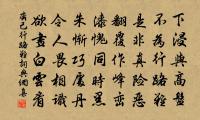 下浸與高盤
不為行路難
是非真險惡
翻覆作峰巒
漆愧同時黑
朱慚巧處丹
令人畏相識
欲畫白雲看
齊己行路難詞典網